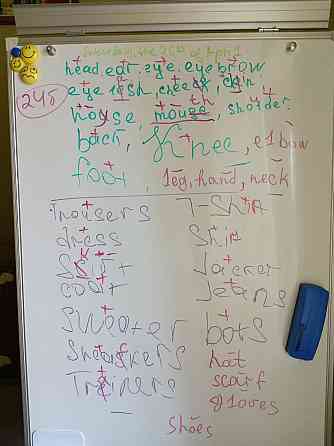 Saturday, the 25th of April
head, ear, eye, eyebrow
245
eyelash, cheek, chin
nouse, mouth, sholder
back, Knee, elbow
foot, leg, hand, neck
Trousers T-Shirt
dress Shirt
Skirt Jacket
coat Jeans
Sweater bots
Sneakers hat
Trainers scarf
gloves
Shoes